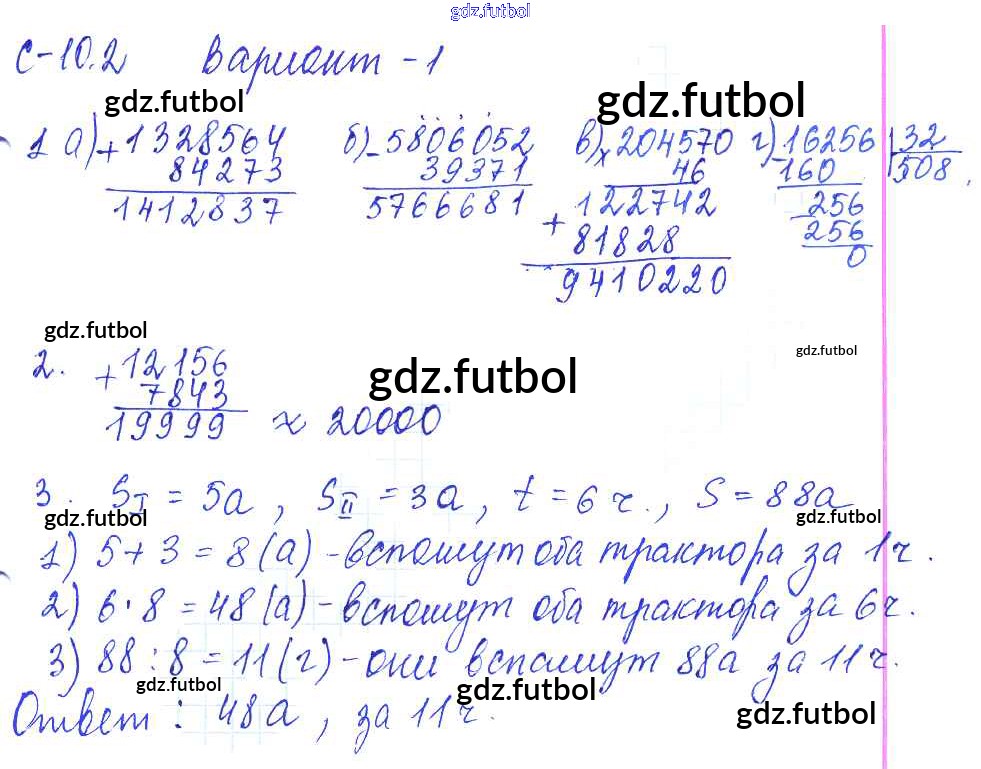 gdz.futbol
С-10.2 Вариант -1
gdz.futbol gdz.futbol
1 а) + 1328564 б) - 5806052 в) × 204570 г) - 16256 | 32
84273 39371 46 160 508
1412837 5766681 122742 256
+ 81828 256
9410220 0
gdz.futbol
2. + 12156 gdz.futbol
7843 gdz.futbol
19999 ≈ 20000
3. S I = 5а, S II = 3а, t = 6 ч., S = 88а
gdz.futbol gdz.futbol
1) 5 + 3 = 8 (а) - вспашут оба трактора за 1 ч.
2) 6 · 8 = 48 (а) - вспашут оба трактора за 6 ч.
3) 88 : 8 = 11 (г) - они вспашут 88а за 11 ч.
gdz.futbol gdz.futbol
Ответ : 48а, за 11 ч.
gdz.futbol